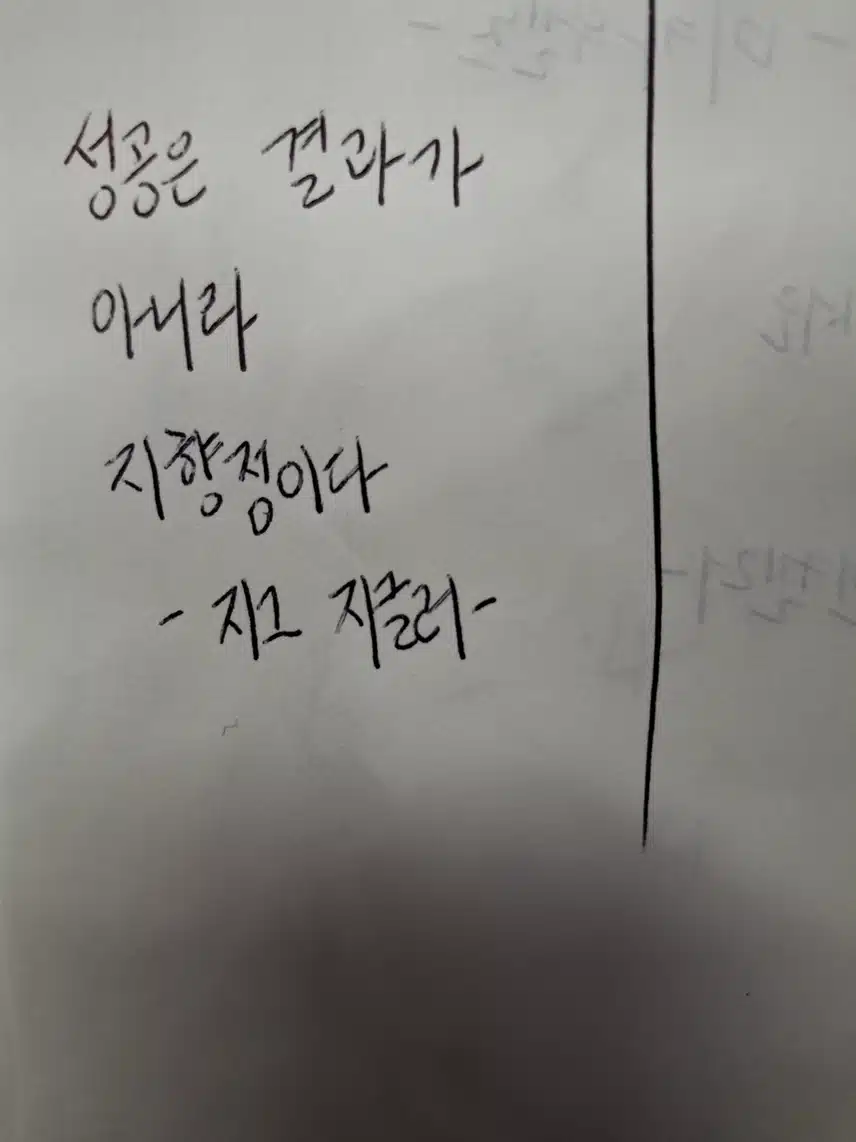 성공은 결과가
아니라
지향점이다
- 지그 지글러 -